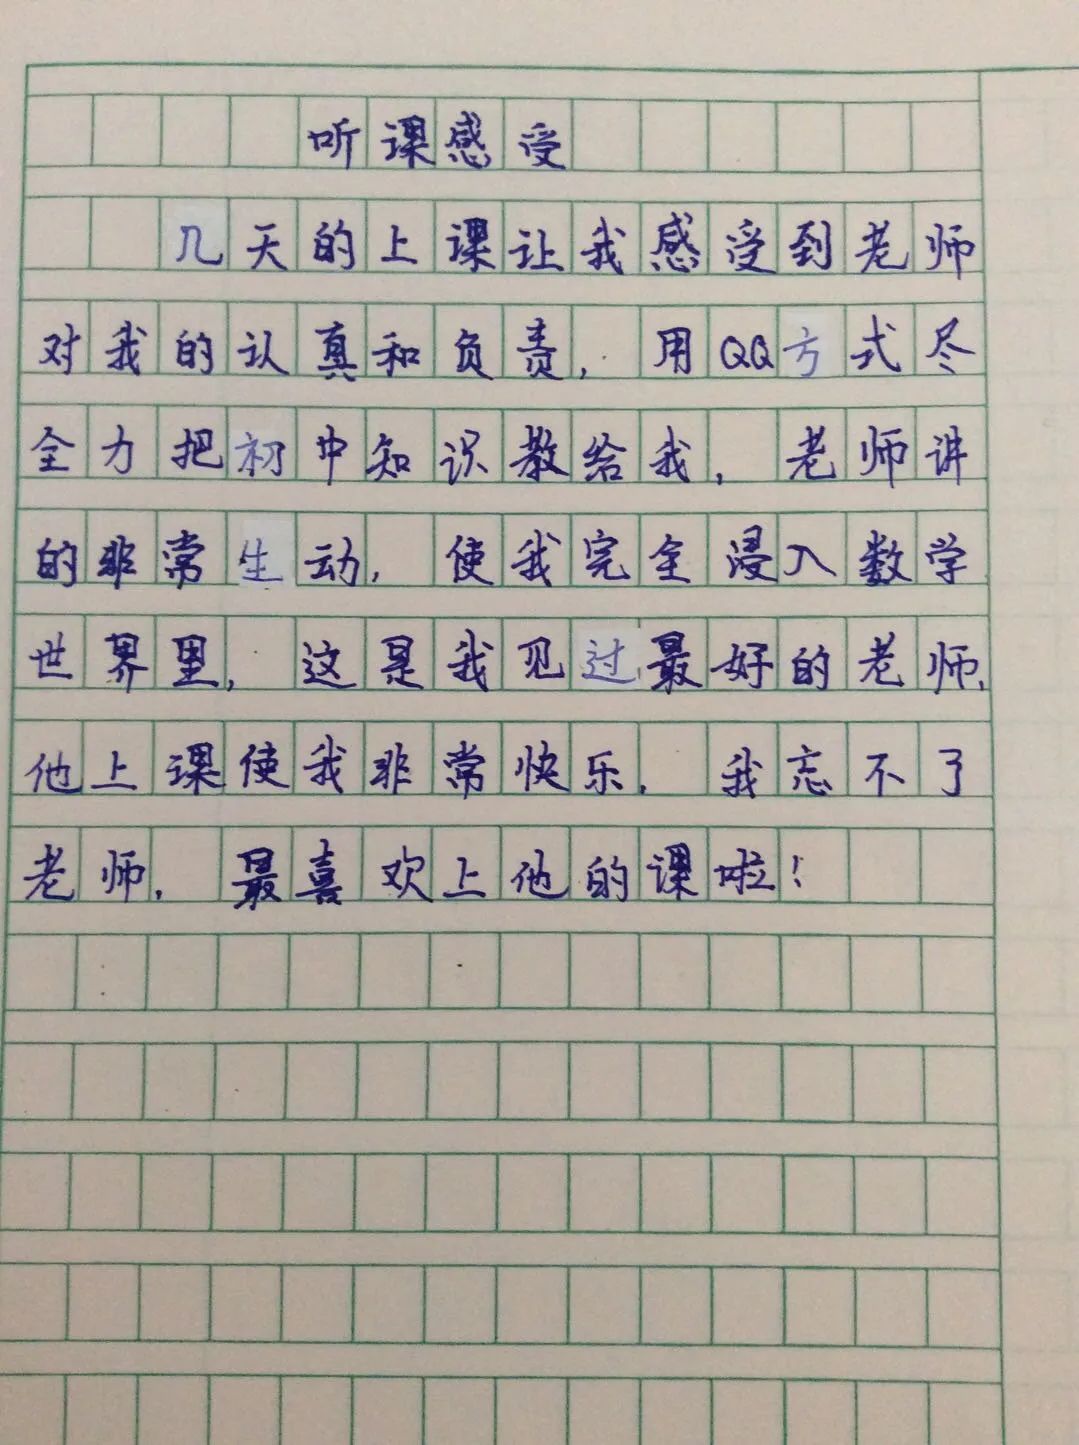 听课感受
几天的上课让我感受到老师
对我的认真和负责，用QQ方式尽
全力把初中知识教给我，老师讲
的非常生动，使我完全浸入数学
世界里，这是我见过最好的老师，
他上课使我非常快乐，我忘不了
老师，最喜欢上他的课啦！